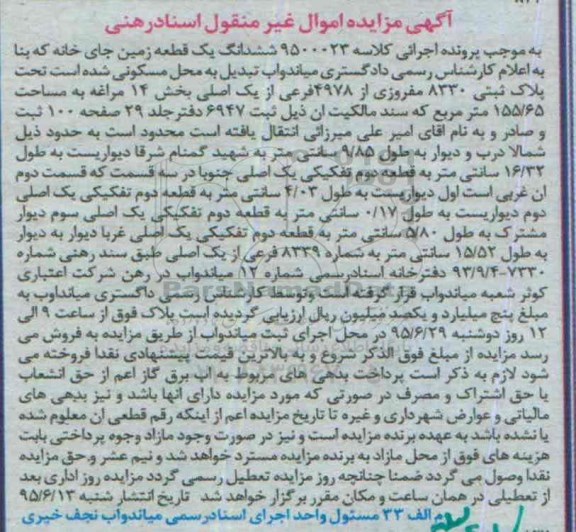 آگهی مزایده اموال غیر منقول اسناد رهنی
به موجب پرونده اجرائی کلاسه ۹۵۰۰۰۲۳ ششدانگ یک قطعه زمین جای خانه که بنا
به اعلام کارشناس رسمی دادگستری میاندواب تبدیل به محل مسکونی شده است تحت
پلاک ثبتی ۸۳۳۰ مفروزی از ۴۹۷۸فرعی از یک اصلی بخش ۱۴ مراغه به مساحت
۱۵۵/۶۵ متر مربع که سند مالکیت ان ذیل ثبت ۶۹۴۷ دفترجلد ۲۹ صفحه ۱۰۰ ثبت
و صادر و به نام اقای امیر علی میرزائی انتقال یافته است محدود است به حدود ذیل
شمالا درب و دیوار به طول ۹/۸۵ سانتی متر به شهید گمنام شرقا دیواریست به طول
۱۶/۳۲ سانتی متر به قطعه دوم تفکیکی یک اصلی جنوبا در سه قسمت که قسمت دوم
ان غربی است اول دیواریست به طول ۴/۰۳ سانتی متر به قطعه دوم تفکیکی یک اصلی
دوم دیواریست به طول ۰/۱۷ سانتی متر به قطعه دوم تفکیکی یک اصلی سوم دیوار
مشترک به طول ۵/۸۰ سانتی متر به قطعه دوم تفکیکی یک اصلی غربا دیوار به دیوار
به طول ۱۵/۵۲ سانتی متر به شماره ۸۳۳۹ فرعی از یک اصلی طبق سند رهنی شماره
۷۳۳۰-۹۳/۹/۴ دفترخانه اسنادرسمی شماره ۱۲ میاندواب در رهن شرکت اعتباری
کوثر شعبه میاندواب قرار گرفته است وتوسط کارشناس رسمی داگستری میانداوب به
مبلغ پنج میلیارد و یکصد میلیون ریال ارزیابی گردیده است پلاک فوق از ساعت ۹ الی
۱۲ روز دوشنبه ۹۵/۶/۲۹ در محل اجرای ثبت میاندواب از طریق مزایده به فروش می
رسد مزایده از مبلغ فوق الذکر شروع و به بالاترین قیمت پیشنهادی نقدا فروخته می
شود لازم به ذکر است پرداخت بدهی های مربوط به اب برق گاز اعم از حق انشعاب
یا حق اشتراک و مصرف در صورتی که مورد مزایده دارای انها باشد و نیز بدهی های
مالیاتی و عوارض شهرداری و غیره تا تاریخ مزایده اعم از اینکه رقم قطعی ان معلوم شده
یا نشده باشد به عهده برنده مزایده است و نیز در صورت وجود مازاد وجوه پرداختی بابت
هزینه های فوق از محل مازاد به برنده مزایده مسترد خواهد شد و نیم عشر و حق مزایده
نقدا وصول می گردد ضمنا چنانچه روز مزایده تعطیل رسمی گردد مزایده روز اداری بعد
از تعطیلی در همان ساعت و مکان مقرر برگزار خواهد شد تاریخ انتشار شنبه ۹۵/۶/۱۳
م الف ۳۳ مسئول واحد اجرای اسنادرسمی میاندواب نجف خیری